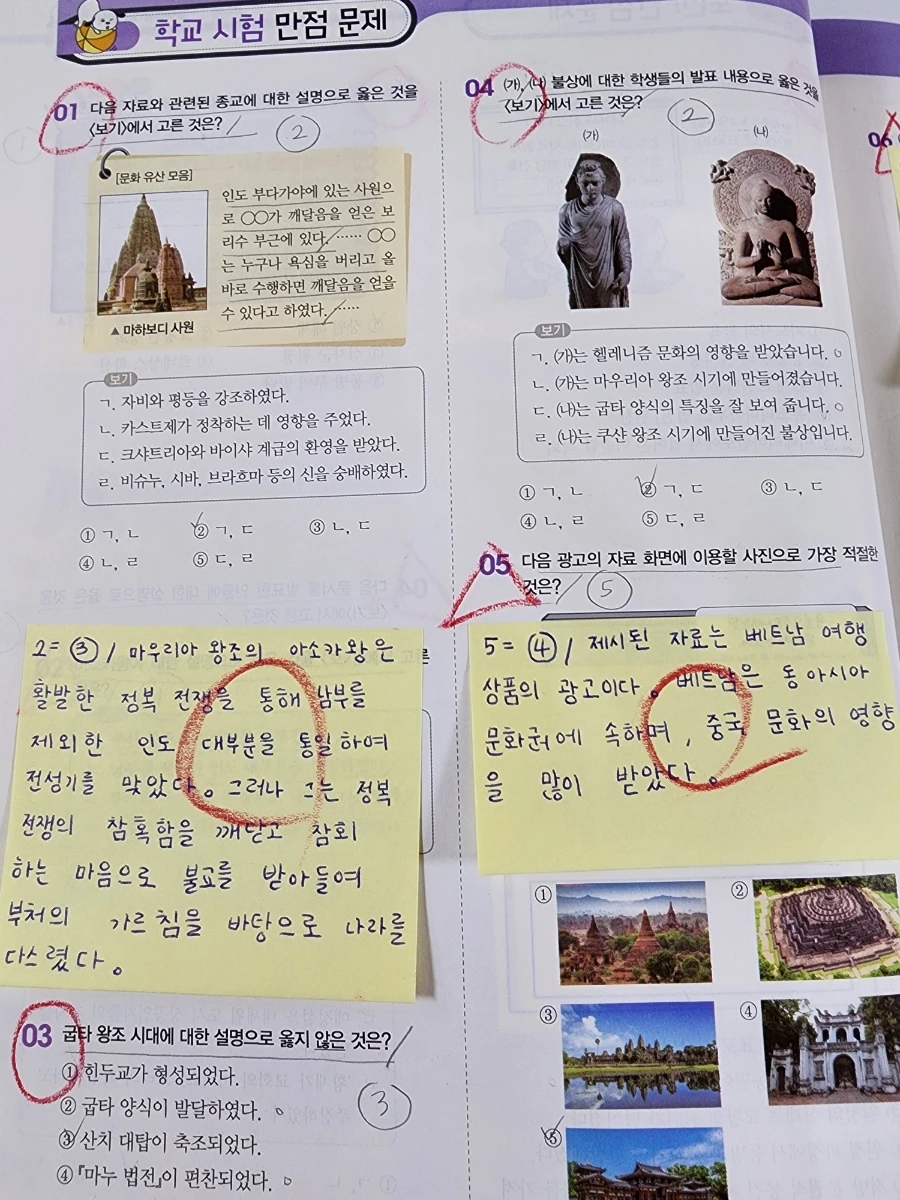 학교 시험 만점 문제
01 다음 자료와 관련된 종교에 대한 설명으로 옳은 것을
<보기>에서 고른 것은?
②
[문화 유산 모음]
인도 부다가야에 있는 사원으
로 ○○가 깨달음을 얻은 보
리수 부근에 있다. …… ○○
는 누구나 욕심을 버리고 올
바로 수행하면 깨달음을 얻을
수 있다고 하였다. ……
▲ 마하보디 사원
보기
ㄱ. 자비와 평등을 강조하였다.
ㄴ. 카스트제가 정착하는 데 영향을 주었다.
ㄷ. 크샤트리아와 바이샤 계급의 환영을 받았다.
ㄹ. 비슈누, 시바, 브라흐마 등의 신을 숭배하였다.
① ㄱ, ㄴ ② ㄱ, ㄷ ③ ㄴ, ㄷ
④ ㄴ, ㄹ ⑤ ㄷ, ㄹ
2= ③ / 마우리아 왕조의 아소카왕은
활발한 정복 전쟁을 통해 남부를
제외한 인도 대부분을 통일하여
전성기를 맞았다. 그러나 그는 정복
전쟁의 참혹함을 깨닫고 참회
하는 마음으로 불교를 받아들여
부처의 가르침을 바탕으로 나라를
다스렸다.
03 굽타 왕조 시대에 대한 설명으로 옳지 않은 것은?
① 힌두교가 형성되었다.
② 굽타 양식이 발달하였다.
③ 산치 대탑이 축조되었다.
④ 『마누 법전』이 편찬되었다.
③
04 (가), (나) 불상에 대한 학생들의 발표 내용으로 옳은 것을
<보기>에서 고른 것은?
②
(가) (나)
보기
ㄱ. (가)는 헬레니즘 문화의 영향을 받았습니다.
ㄴ. (가)는 마우리아 왕조 시기에 만들어졌습니다.
ㄷ. (나)는 굽타 양식의 특징을 잘 보여 줍니다.
ㄹ. (나)는 쿠샨 왕조 시기에 만들어진 불상입니다.
① ㄱ, ㄴ ② ㄱ, ㄷ ③ ㄴ, ㄷ
④ ㄴ, ㄹ ⑤ ㄷ, ㄹ
05 다음 광고의 자료 화면에 이용할 사진으로 가장 적절한
것은?
⑤
5= ④ / 제시된 자료는 베트남 여행
상품의 광고이다. 베트남은 동아시아
문화권에 속하며, 중국 문화의 영향
을 많이 받았다.
① ②
③ ④
⑤
06